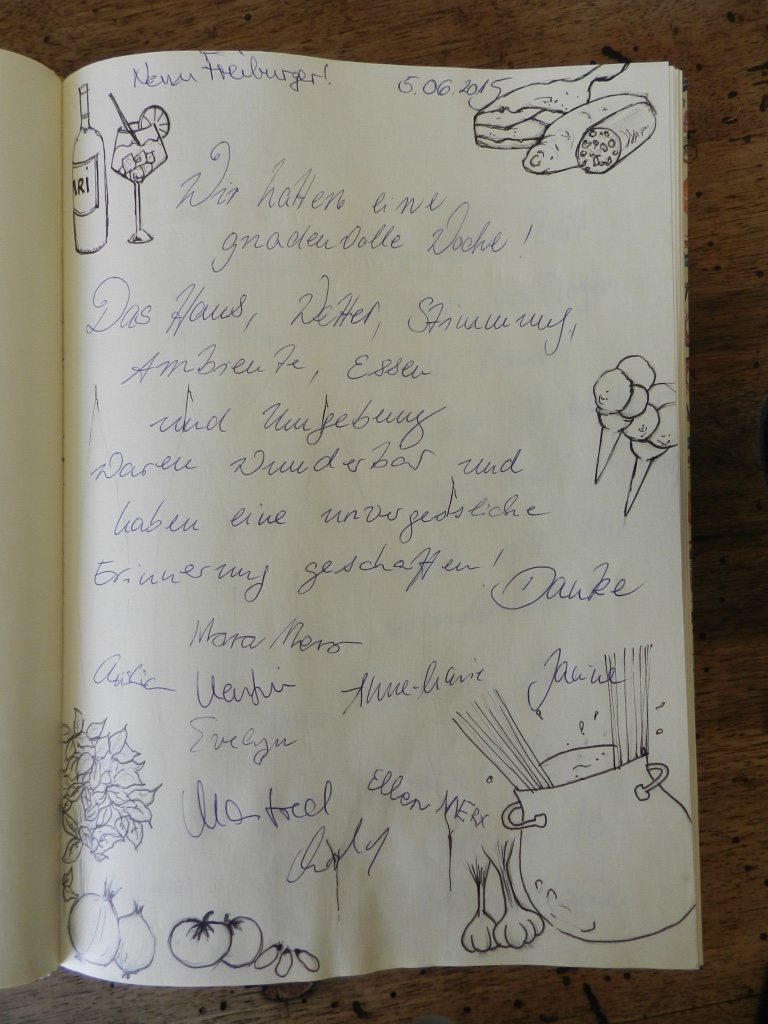 Neun Freiburger!
5.06.2015
ARI
Wir hatten eine
gnadenvolle Woche!
Das Haus, Wetter, Stimmung,
Ambiente, Essen
und Umgebung
waren wunderbar und
haben eine unvergessliche
Erinnerung geschaffen!
Danke
Mara Merx
Anne-Marie
Janine
Evelyn
Manfred
Ellen MERX